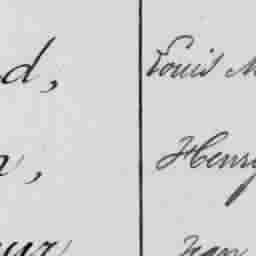 d, Louis M
n, Henry
eur Jean